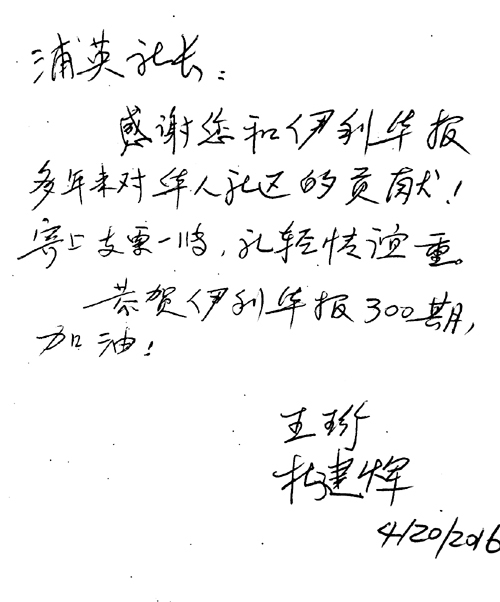 浦英社长：
感谢您和伊利华报
多年来对华人社区的贡献！
寄上支票一张，礼轻情谊重。
恭贺伊利华报300期，
加油！
王珩
杜建辉
4/20/2016